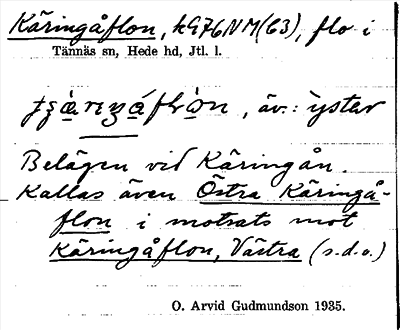 Käringåflon, kG76NM(63), flo i
Tännäs sn, Hede hd, Jtl. l.
äv.: ỳstar
Belägen vid Käringån.
Kallas även Östra Käringå-
flon i motsats mot
Käringåflon, Västra (s.d.o.)
O. Arvid Gudmundson 1935.